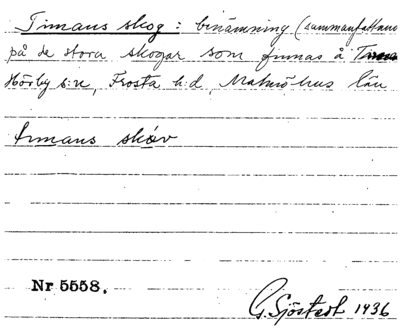 Timans skog: benämning (sammanfattan
på de stora skogar som finnas å
Hörby s:n, Frosta h:d, Malmöhus län
timans skóv
Nr 5558.
G. Sjöstedt 1936